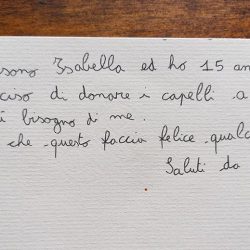 sono Isabella ed ho 15 an
ciso di donare i capelli a
bisogno di me.
che questo faccia felice qualc
Saluti da